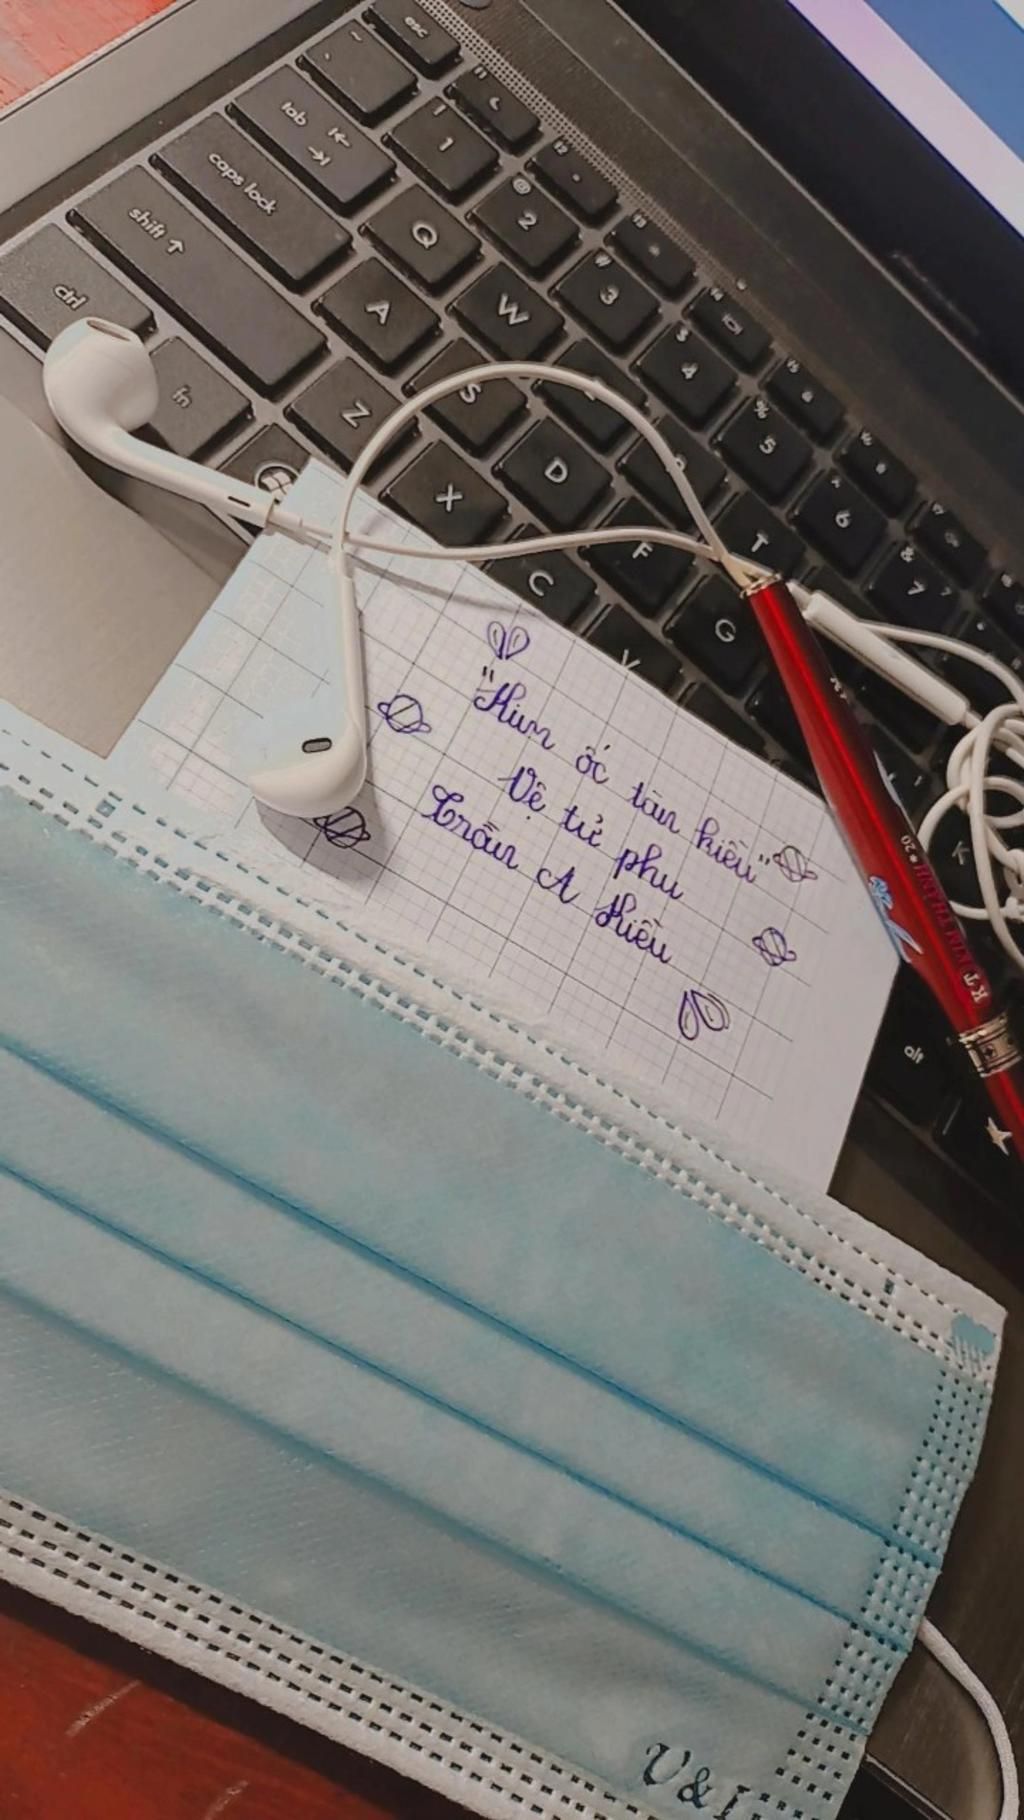 esc
tab
caps lock
shift
ctrl
fn
alt
! 1
@ 2
# 3
$ 4
% 5
^ 6
& 7
Q W
A S D F G
Z X C V
T
K
"Kim ốc tàn kiều"
Vệ tử phu
Trần A Kiều
KT KIM THÀNH * 20
U & I